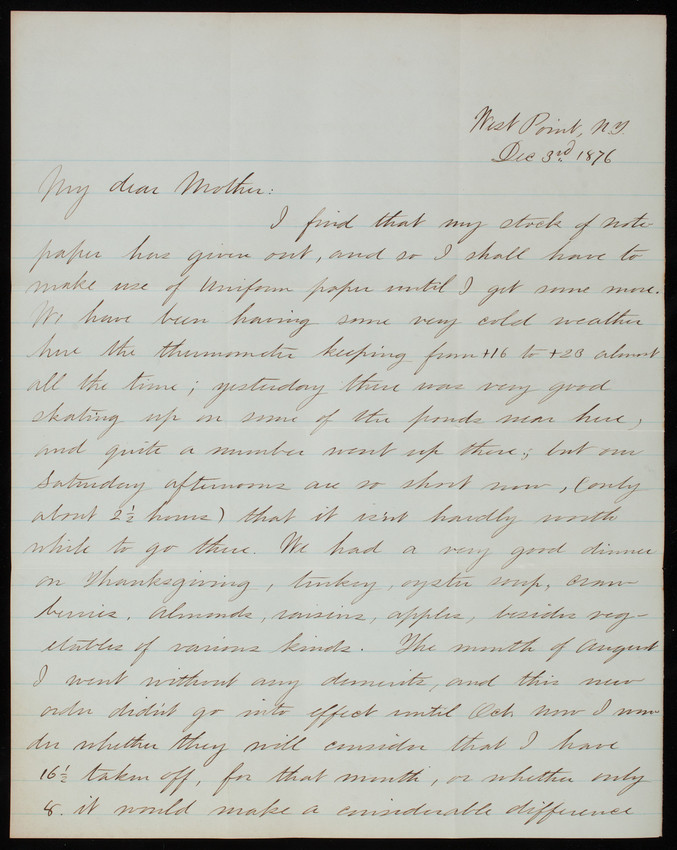 West Point, N.Y.
Dec 3rd 1876
My dear Mother:
I find that my stock of note
paper has given out, and so I shall have to
make use of Uniform paper until I get some more.
We have been having some very cold weather
here the thermometer keeping from +16 to +28 almost
all the time; yesterday there was very good
skating up on some of the ponds near here,
and quite a number went up there; but our
Saturday afternoons are so short now, (only
about 2½ hours) that it isn't hardly worth
while to go there. We had a very good dinner
on Thanksgiving, turkey, oyster soup, cran-
berries, almonds, raisins, apples, besides veg-
etables of various kinds. The month of August
I went without any demerits, and this new
order didn't go into effect until Oct. now I won-
der whether they will consider that I have
16½ taken off, for that month, or whether only
8. it would make a considerable difference